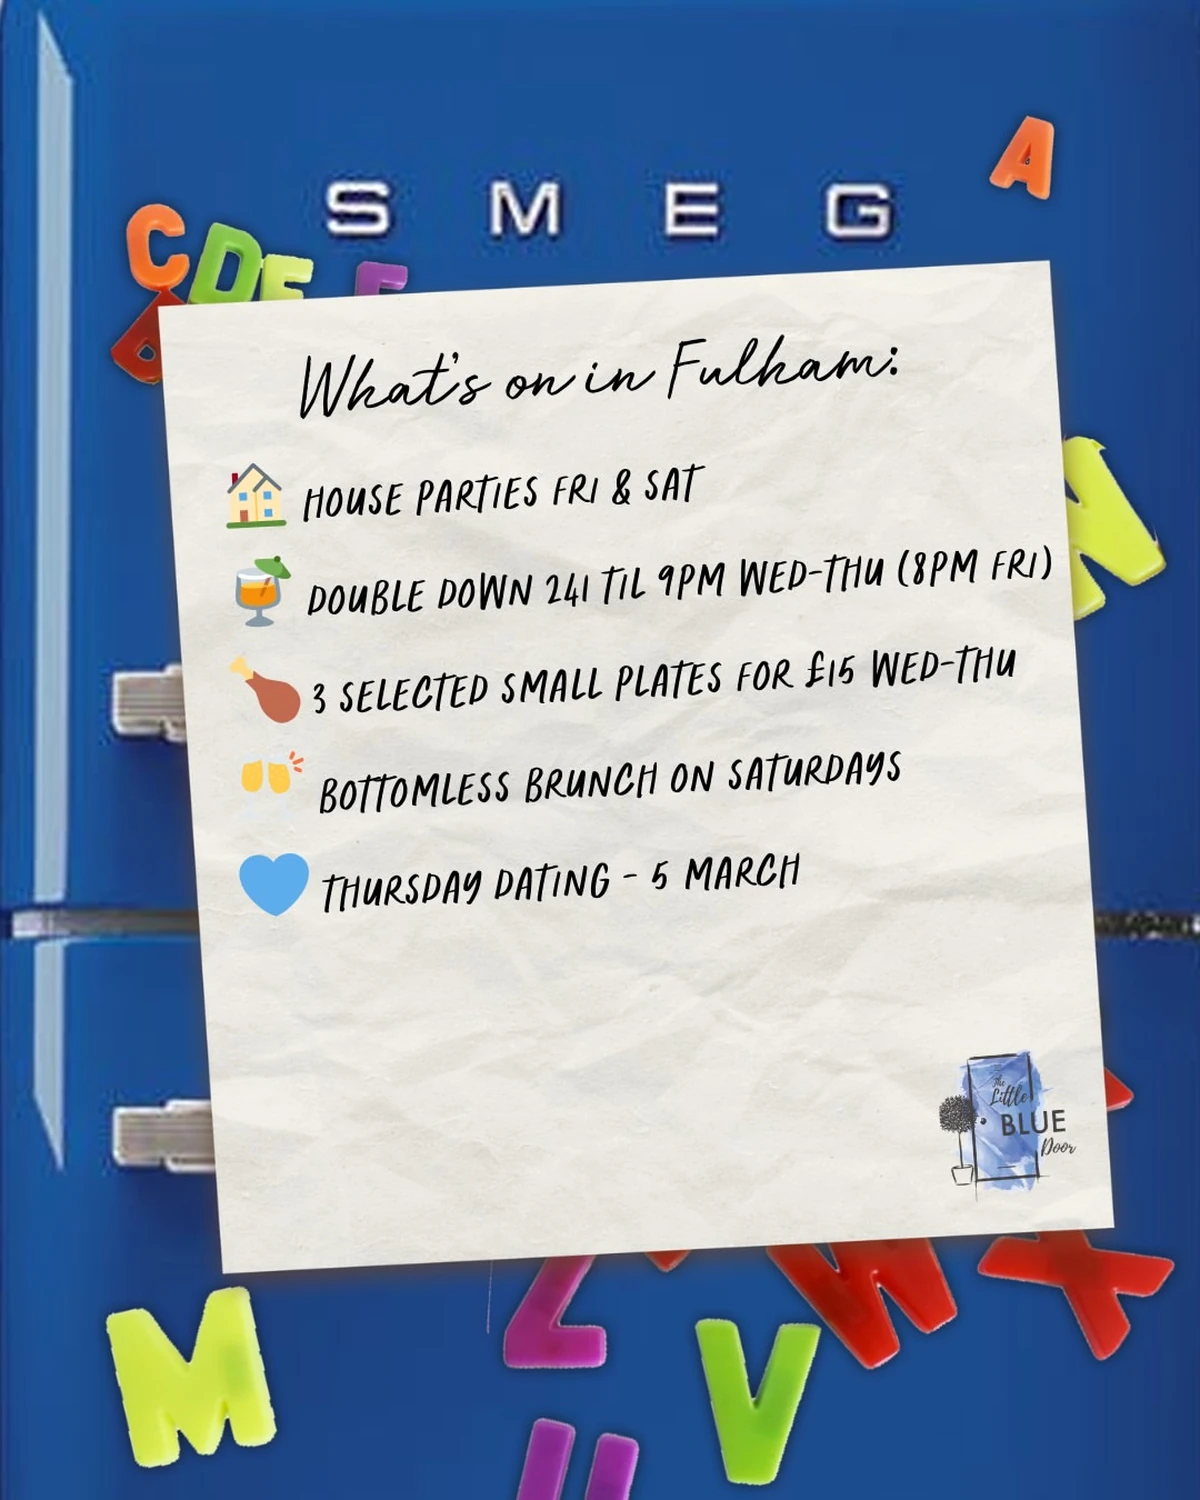 A
SMEG
C
D
E
F
B
What's on in Fulham:
HOUSE PARTIES FRI & SAT
DOUBLE DOWN 241 TIL 9PM WED-THU (8PM FRI)
3 SELECTED SMALL PLATES FOR £15 WED-THU
BOTTOMLESS BRUNCH ON SATURDAYS
THURSDAY DATING - 5 MARCH
N
The
Little
BLUE
Door
Z
W
X
M
V
U